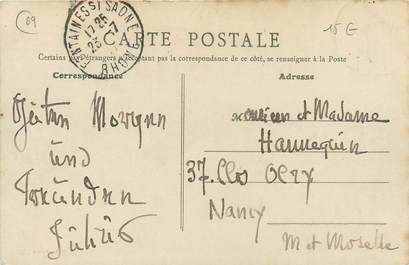 69
15 €
FONTAINES S/ SAONE
17 25
23 - 7
RHONE
CARTE POSTALE
Certains pays étrangers n'acceptant pas la correspondance de ce côté, se renseigner à la Poste
Correspondance
Adresse
Guten Morgen
und
Julius
Monsieur et Madame
Hannequin
37. Clos
Nancy
M et Moselle